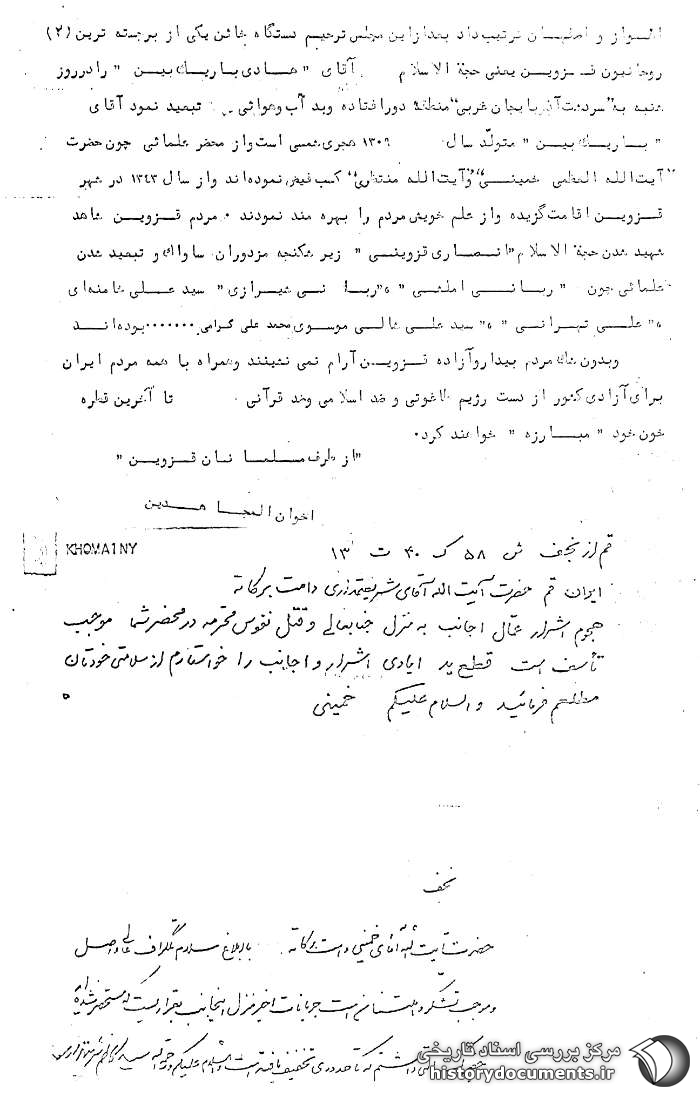 اهواز و اصفهان ترتیب داد بعد از این مجلس ترحیم دستگاه خائن یکی از برجسته ترین (۲)
روحانیون قزوین یعنی حجة الاسلام آقای " هادی باریک بین " را در روز
شنبه به "سردشت آذربایجان غربی" منطقه دورافتاده وبد آب وهوائی تبعید نمود آقای
" باریک بین " متولد سال ۱۳۰۹ هجری شمسی است واز محضر علمائی چون حضرت
"آیت الله العظمی خمینی" و"آیت الله منتظری" کسب فیض نموده اند واز سال ۱۳۴۳ در شهر
قزوین اقامت گزیده واز علم خویش مردم را بهره مند نمودند ۰ مردم قزوین شاهد
شهید شدن حجة الاسلام "انصاری قزوینی " زیر شکنجه مزدوران ساواک و تبعید شدن
علمائی چون " ربانی املشی " ،"ربانی شیرازی " سید علی خامنه ای
،" علی تهرانی " ،" سید علی غالی موسوی محمد علی گرامی ۰۰۰۰۰۰۰ بوده اند
وبدون شک مردم بیدار وآزاده قزوین آرام نمی نشینند وهمراه با همه مردم ایران
برای آزادی کشور از دست رژیم طاغوتی و ضد اسلامی وضد قرآنی تا آخرین قطره
خون خود " مبارزه " خواهند کرد۰
"از طرف مسلمانان قزوین "
اخوان المجاهدین
KHOMAINY
قم از نجف ش ۵۸ ک ۴۰ ت ۱۳
ایران قم حضرت آیت اله آقای شریعتمداری دامت برکاته
هجوم اشرار عمال اجانب به منزل جنابعالی و قتل نفوس محترمه در محضر شما موجب
تأسف است قطع ید ایادی اشرار و اجانب را خواستارم از سلامتی خودتان
مطلعم فرمائید والسلام علیکم خمینی
نجف
حضرت آیت الله آقای خمینی دامت برکاته با ابلاغ سلام تلگراف عالی واصل
و موجب تشکر و امتنان است جریانات اخیر منزل اینجانب بقراریست که مستحضر شده اید
که تا حدودی تخفیف یافته است والسلام علیکم ورحمة اله سید کاظم شریعتمداری
مرکز بررسی اسناد تاریخی
historydocuments.ir